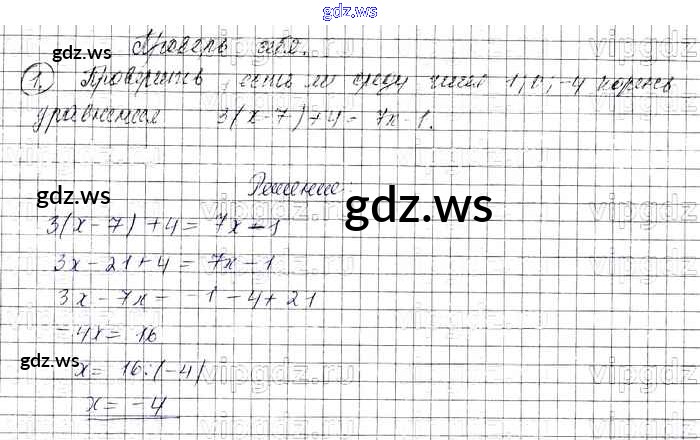 gdz.ws
Проверь себя.
gdz.ws
1. Проверить, есть ли среди чисел 1; 0; -4 корень
уравнения 3(x-7)+4=7x-1.
Решение:
gdz.ws
gdz.ws
3(x-7)+4=7x-1
3x-21+4=7x-1
3x-7x=-1-4+21
-4x=16
gdz.ws
gdz.ws
vipgdz.ru
x=16:(-4)
x=-4
gdz.ws